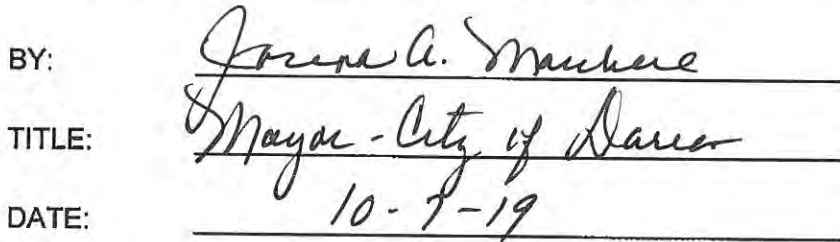 BY: Joseph A. Marchese
TITLE: Mayor - City of Darien
DATE: 10-7-19